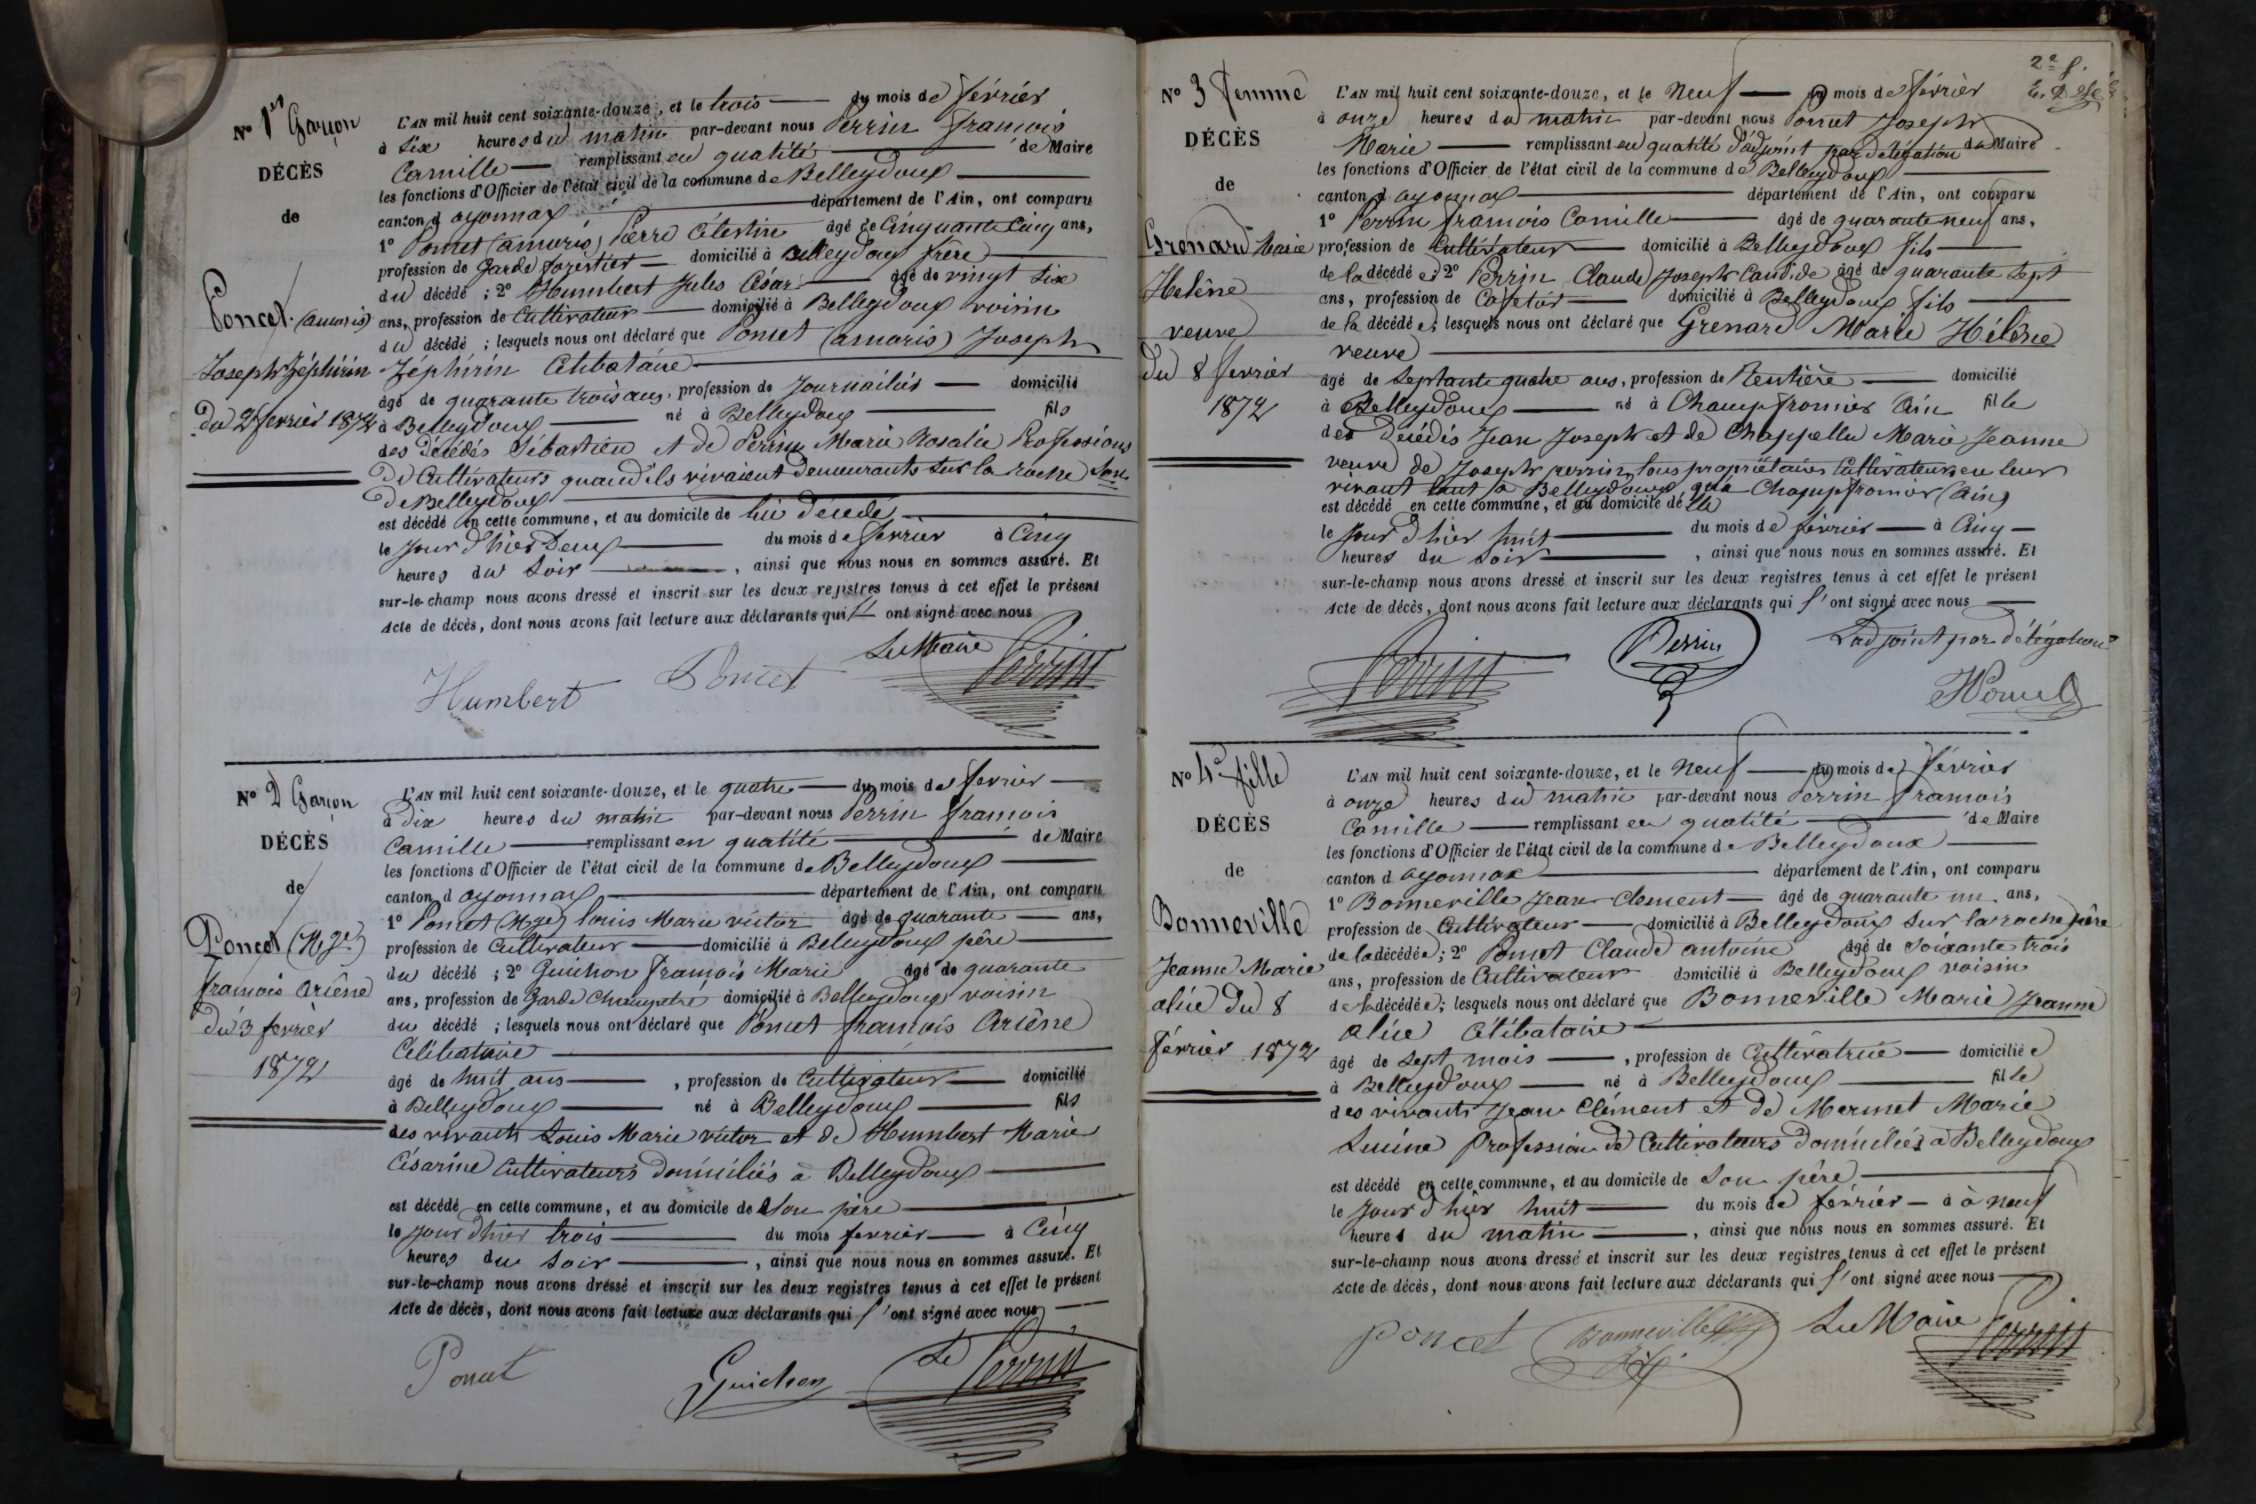 N° 1er Garçon
DÉCÈS
de
Poncet (amaris)
Joseph Zéphirin
du 2 février 1872
L'AN mil huit cent soixante-douze, et le trois du mois de février
à dix heures du matin par-devant nous Perrin françois
Camille remplissant en qualité de Maire
les fonctions d'Officier de l'état civil de la commune de Belleydoux
canton d oyonnax département de l'Ain, ont comparu
1° Poncet (amaris) Pierre Célestin âgé de Cinquante Cinq ans,
profession de Garde forestier domicilié à Belleydoux frère
du décédé ; 2° Humbert Jules César âgé de vingt Six
ans, profession de Cultivateur domicilié à Belleydoux voisin
du décédé ; lesquels nous ont déclaré que Poncet (amaris) Joseph
Zéphirin Célibataire
âgé de quarante trois ans, profession de Journalier domicilié
à Belleydoux né à Belleydoux fils
des Décédés Sébastien et de Perrin Marie Rosalie Professions
De Cultivateurs quand ils vivaient demeurants sur la roche
De Belleydoux
est décédé en cette commune, et au domicile de lui décédé
le jour d'hier Deux du mois de février à Cinq
heures du Soir , ainsi que nous nous en sommes assuré. Et
sur-le-champ nous avons dressé et inscrit sur les deux registres tenus à cet effet le présent
Acte de décès, dont nous avons fait lecture aux déclarants qui l' ont signé avec nous
Le Maire
Humbert Poncet Perrin
N° 2 Garçon
DÉCÈS
de
Poncet (Mge)
françois Ariène
du 3 février
1872
L'AN mil huit cent soixante-douze, et le quatre du mois de février
à Dix heures du matin par-devant nous Perrin françois
Camille remplissant en qualité de Maire
les fonctions d'Officier de l'état civil de la commune de Belleydoux
canton d oyonnax département de l'Ain, ont comparu
1° Poncet (Mge) louis Marie victor âgé de quarante ans,
profession de Cultivateur domicilié à Belleydoux père
du décédé ; 2° Guichon françois Marie âgé de quarante
ans, profession de Garde Champetre domicilié à Belleydoux voisin
du décédé ; lesquels nous ont déclaré que Poncet françois Ariène
Célibataire
âgé de huit ans , profession de Cultivateur domicilié
à Belleydoux né à Belleydoux fils
des vivants Louis Marie victor et de Humbert Marie
Césarine Cultivateurs domiciliés à Belleydoux
est décédé en cette commune, et au domicile de Son père
le jour d'hier trois du mois février à Cinq
heures du Soir , ainsi que nous nous en sommes assuré. Et
sur-le-champ nous avons dressé et inscrit sur les deux registres tenus à cet effet le présent
Acte de décès, dont nous avons fait lecture aux déclarants qui l' ont signé avec nous
Poncet Guichon Le Perrin
2e f.
N° 3 femme
DÉCÈS
de
Grenard Marie
Helène
veuve
du 8 février
1872
L'AN mil huit cent soixante-douze, et le neuf du mois de février
à onze heures du matin par-devant nous Poncet Joseph
Marie remplissant en qualité d'adjoint par délégation du Maire
les fonctions d'Officier de l'état civil de la commune de Belleydoux
canton d oyonnax département de l'Ain, ont comparu
1° Perrin françois Camille âgé de quarante neuf ans,
profession de Cultivateur domicilié à Belleydoux fils
de la décédée ; 2° Perrin Claude Joseph Candide âgé de quarante sept
ans, profession de Cafetier domicilié à Belleydoux fils
de la décédée ; lesquels nous ont déclaré que Grenard Marie Hélène
veuve
âgé de Septante quatre ans, profession de Rentière domicilié
à Belleydoux né à Champfromier Ain fille
des Décédés Jean Joseph et de Chappellu Marie Jeanne
veuve de Joseph perrin, tous propriétaires Cultivateurs en leur
vivant tant à Belleydoux qu'a Champfromier (Ain)
est décédé en cette commune, et au domicile d'elle
le jour d'hier huit du mois de février à Cinq
heures du Soir , ainsi que nous nous en sommes assuré. Et
sur-le-champ nous avons dressé et inscrit sur les deux registres tenus à cet effet le présent
Acte de décès, dont nous avons fait lecture aux déclarants qui l' ont signé avec nous
Perrin Perrin L'adjoint par délégation
Poncet
N° 4e fille
DÉCÈS
de
Bonneville
Jeanne Marie
alice du 8
février 1872
L'AN mil huit cent soixante-douze, et le neuf du mois de février
à onze heures du matin par-devant nous Perrin françois
Camille remplissant en qualité de Maire
les fonctions d'Officier de l'état civil de la commune de Belleydoux
canton d oyonnax département de l'Ain, ont comparu
1° Bonneville Jean Clement âgé de quarante un ans,
profession de Cultivateur domicilié à Belleydoux sur la roche père
de la décédée ; 2° Poncet Claude antoine âgé de soixante trois
ans, profession de Cultivateur domicilié à Belleydoux voisin
de la décédée ; lesquels nous ont déclaré que Bonneville Marie Jeanne
alice Célibataire
âgé de sept mois , profession de Cultivatrice domiciliée
à Belleydoux né à Belleydoux fille
des vivants Jean Clément et de Mermet Marie
Lucine Profession de Cultivateurs domiciliés à Belleydoux
est décédé en cette commune, et au domicile de Son père
le jour d'hier huit du mois de février à à neuf
heures du matin , ainsi que nous nous en sommes assuré. Et
sur-le-champ nous avons dressé et inscrit sur les deux registres tenus à cet effet le présent
Acte de décès, dont nous avons fait lecture aux déclarants qui l' ont signé avec nous
Poncet Bonneville Le Maire Perrin